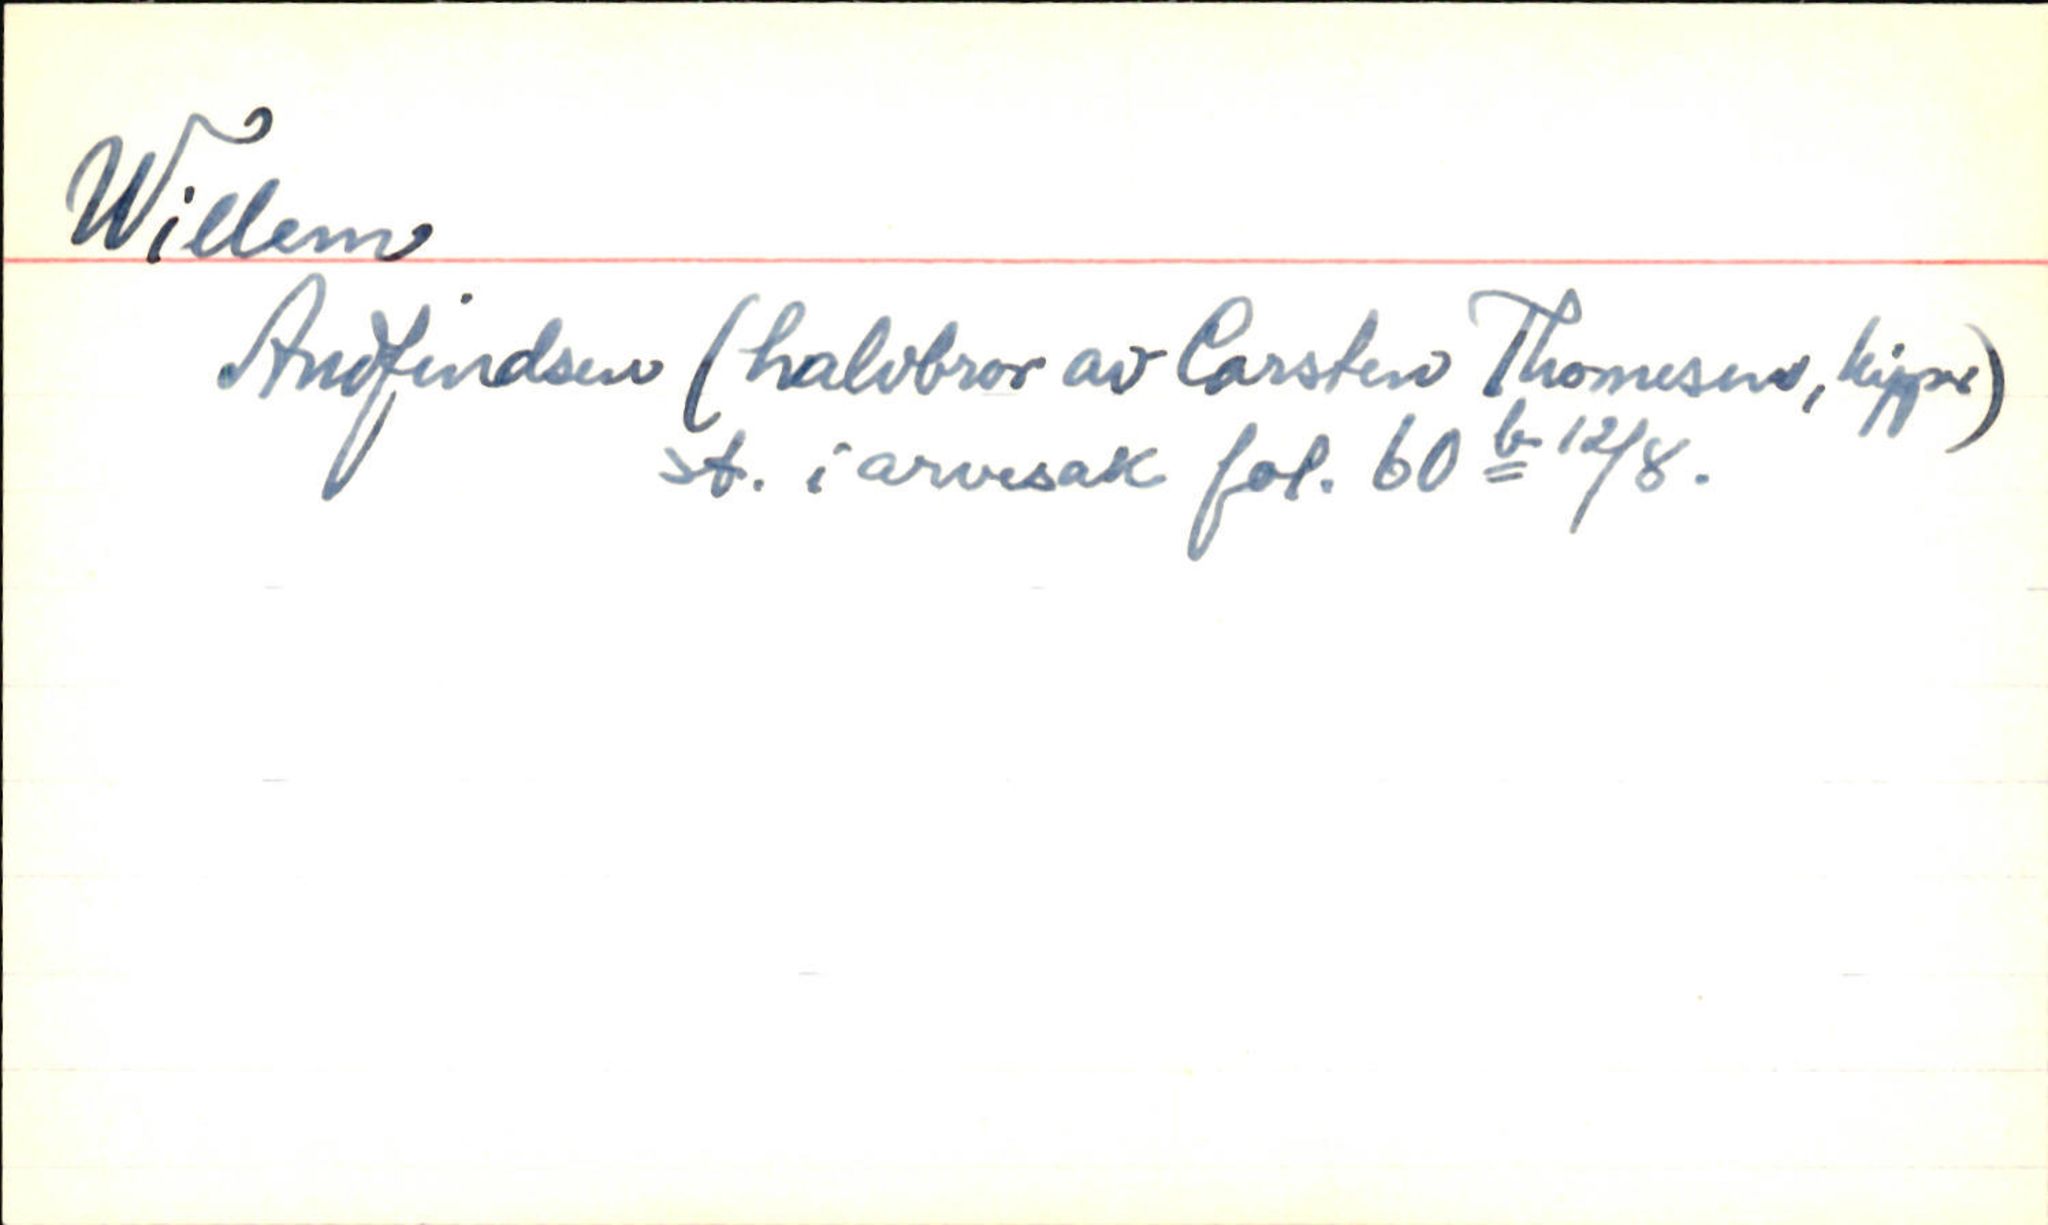 Willem
Andfindsen (halvbror av Carsten Thomesen, kipper)
st. i arvesak fol. 60 b 12/8.